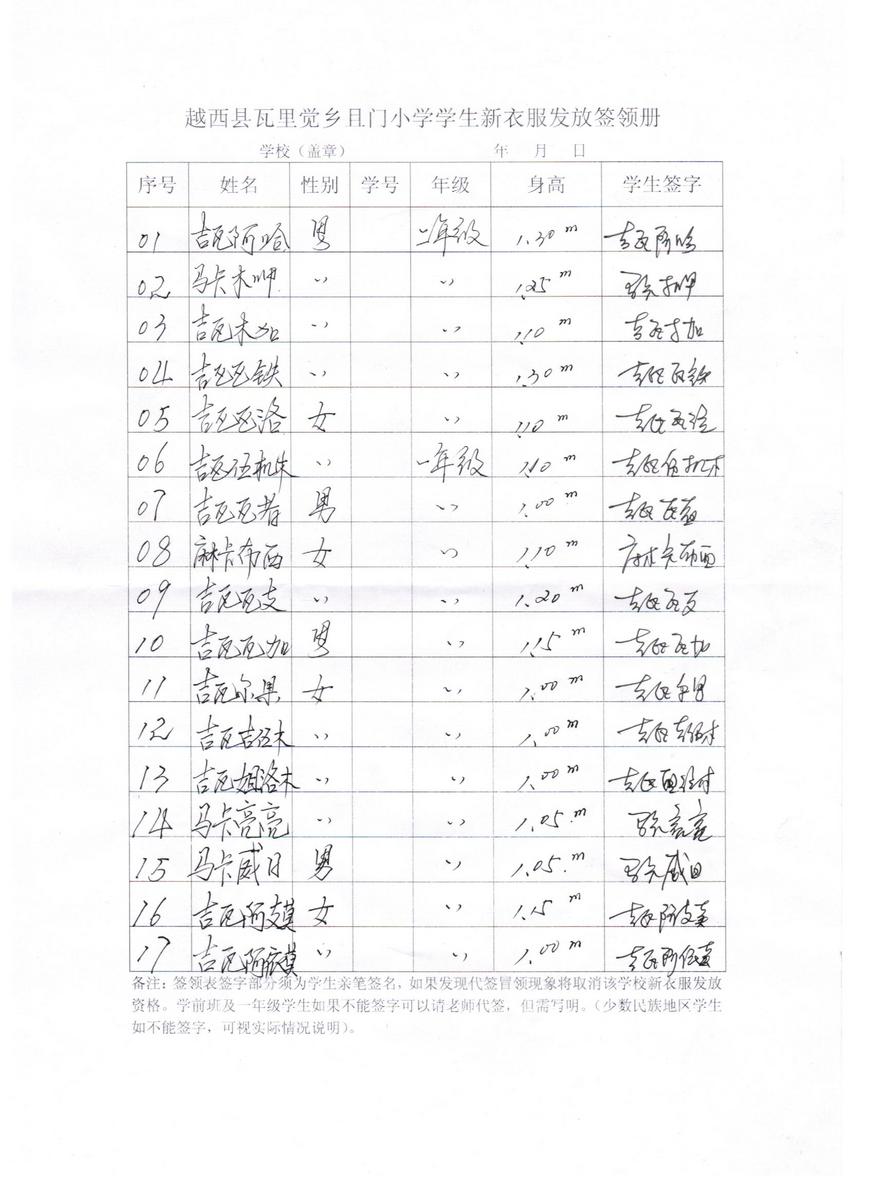 越西县瓦里觉乡且门小学学生新衣服发放签领册
学校（盖章） 年 月 日
序号 姓名 性别 学号 年级 身高 学生签字
01 吉瓦阿哈 男 一年级 1.30 m 吉瓦阿哈
02 马卡木呷 〃 〃 1.25 m 马卡木呷
03 吉瓦木加 〃 〃 1.10 m 吉瓦木加
04 吉瓦瓦铁 〃 〃 1.30 m 吉瓦瓦铁
05 吉瓦瓦洛 女 〃 1.10 m 吉瓦瓦洛
06 吉瓦伍机木 〃 一年级 1.10 m 吉瓦伍机木
07 吉瓦瓦者 男 〃 1.00 m 吉瓦瓦者
08 麻卡布西 女 〃 1.10 m 麻卡布西
09 吉瓦瓦支 〃 〃 1.20 m 吉瓦瓦支
10 吉瓦瓦加 男 〃 1.15 m 吉瓦瓦加
11 吉瓦尔果 女 〃 1.00 m 吉瓦尔果
12 吉瓦吉伍木 〃 〃 1.00 m 吉瓦吉伍木
13 吉瓦妞洛木 〃 〃 1.00 m 吉瓦
14 马卡亮亮 〃 〃 1.05 m 马卡亮亮
15 马卡威日 男 〃 1.05 m 马卡威日
16 吉瓦阿支莫 女 〃 1.15 m 吉瓦阿支莫
17 吉瓦阿依莫 〃 〃 1.00 m 吉瓦阿依莫
备注：签领表签字部分须为学生亲笔签名，如果发现代签冒领现象将取消该学校新衣服发放
资格。学前班及一年级学生如果不能签字可以请老师代签，但需写明。（少数民族地区学生
如不能签字，可视实际情况说明）。